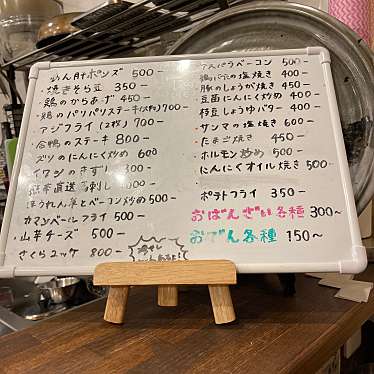 あん肝ポンズ 500-
・焼きそら豆 350-
・鶏のからあげ 450-
・鶏のパリパリステーキ(大判) 700-
・アジフライ(2枚) 700-
・合鴨のステーキ 800-
ズリのにんにく炒め 600
イワシのきずし 300-
熊本直送 馬刺し 1000-
ほうれん草とベーコン炒め 500-
カマンベールフライ 500-
・山芋チーズ 500-
さくらユッケ 800-
ベーコン 500-
塩焼き 400-
・豚のしょうが焼き 450-
・豆苗にんにく炒め 400-
・枝豆しょうゆバター 400-
・サンマの塩焼き 600-
・たまご焼き 450-
・ホルモン炒め 500-
・にんにくオイル焼き 500-
ポテトフライ 350-
おばんざい各種 300~
おでん各種 150~